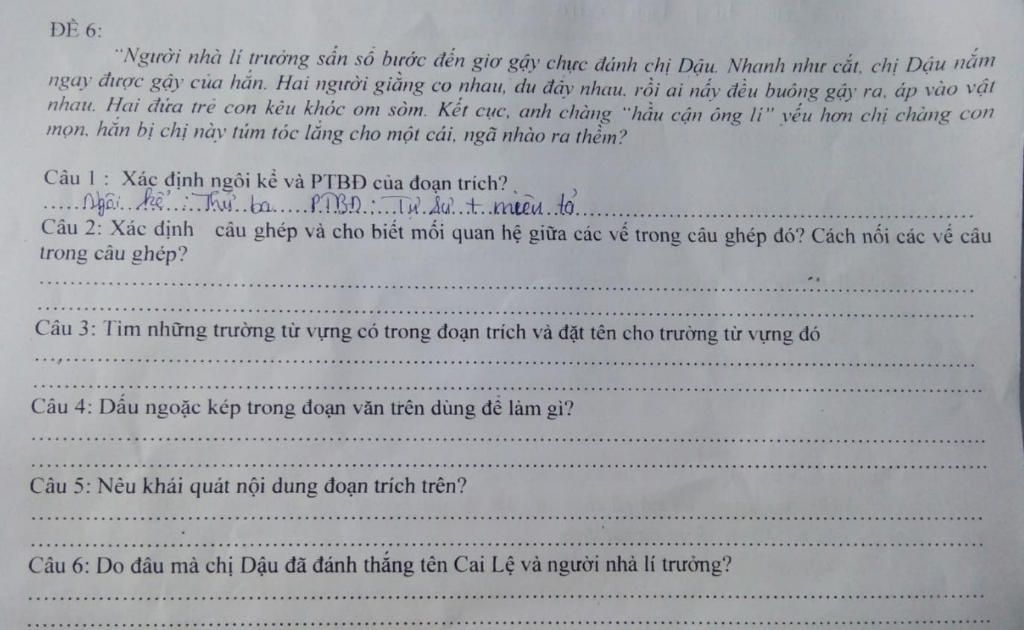 ĐỀ 6:
"Người nhà lí trưởng sấn sổ bước đến giơ gậy chực đánh chị Dậu. Nhanh như cắt, chị Dậu nắm
ngay được gậy của hắn. Hai người giằng co nhau, du đẩy nhau, rồi ai nấy đều buông gậy ra, áp vào vật
nhau. Hai đứa trẻ con kêu khóc om sòm. Kết cục, anh chàng "hầu cận ông lí" yếu hơn chị chàng con
mọn, hắn bị chị này túm tóc lẳng cho một cái, ngã nhào ra thềm?
Câu 1 : Xác định ngôi kể và PTBĐ của đoạn trích?
Ngôi kể : Thứ ba PTBĐ : Tự sự + miêu tả
Câu 2: Xác định câu ghép và cho biết mối quan hệ giữa các vế trong câu ghép đó? Cách nối các vế câu
trong câu ghép?
Câu 3: Tìm những trường từ vựng có trong đoạn trích và đặt tên cho trường từ vựng đó
Câu 4: Dấu ngoặc kép trong đoạn văn trên dùng để làm gì?
Câu 5: Nêu khái quát nội dung đoạn trích trên?
Câu 6: Do đâu mà chị Dậu đã đánh thắng tên Cai Lệ và người nhà lí trưởng?